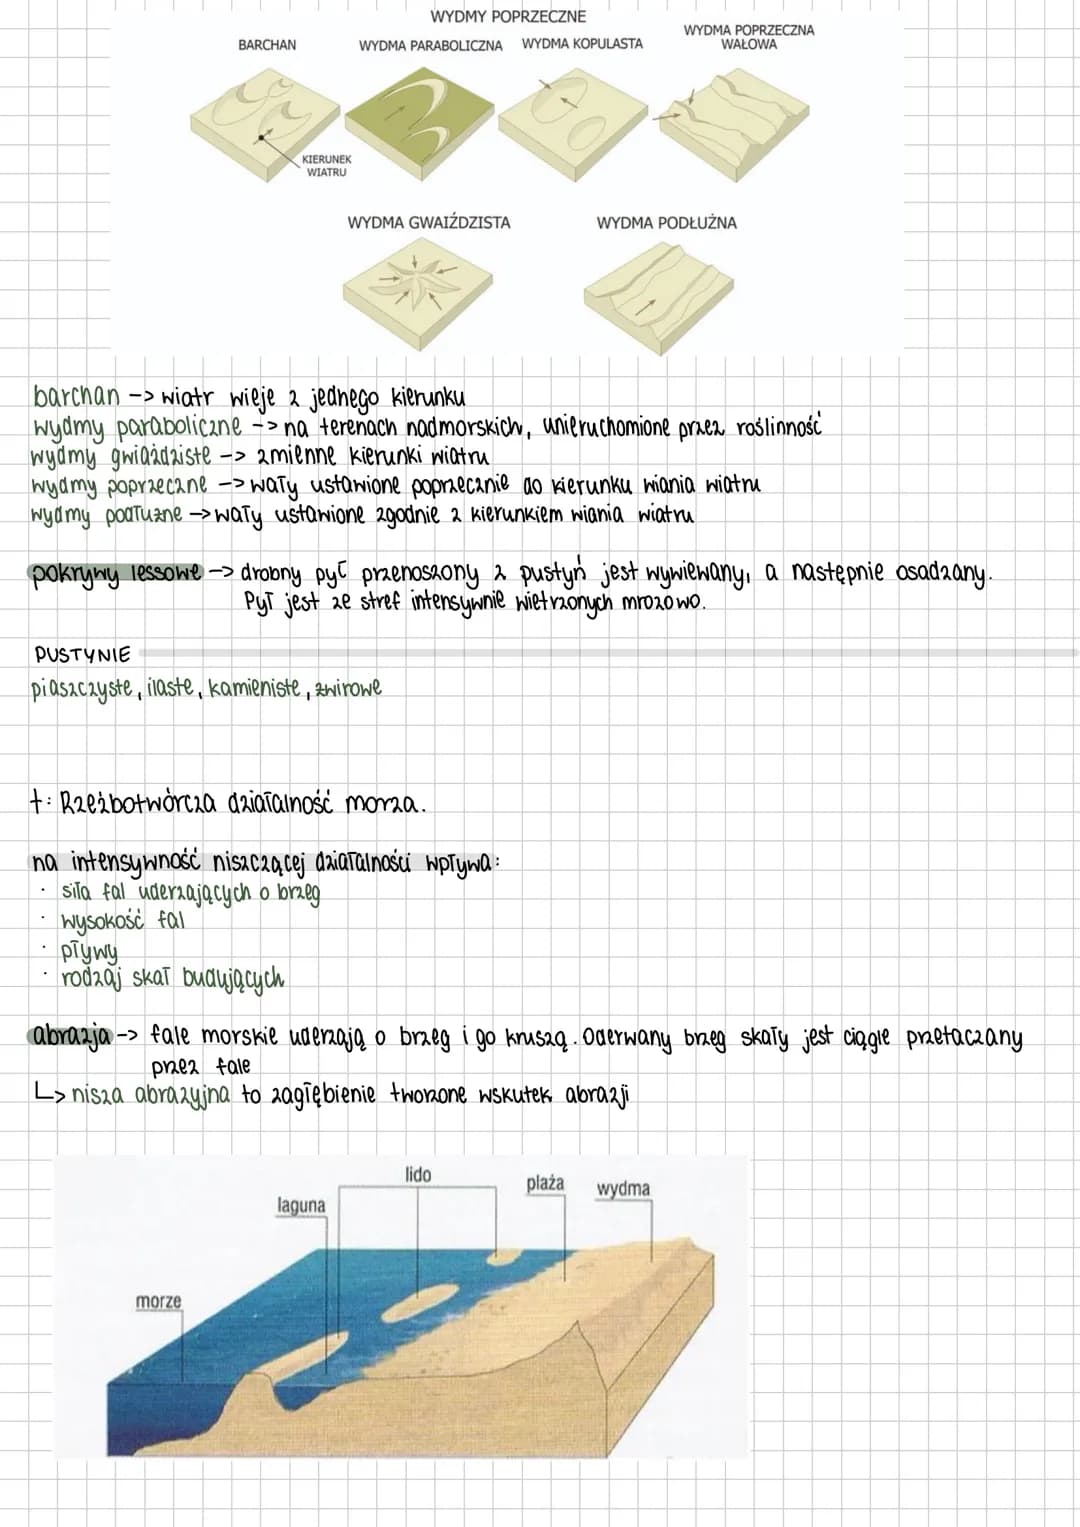 WYDMY POPRZECZNE
BARCHAN
WYDMA PARABOLICZNA
WYDMA KOPULASTA
WYDMA POPRZECZNA
WAŁOWA
KIERUNEK
WIATRU
WYDMA GWAIŹDZISTA
WYDMA PODŁUŻNA
barchan -> wiatr wieje z jednego kierunku
wydmy paraboliczne -> na terenach nadmorskich, unieruchomione przez roślinność
wydmy gwiaździste -> zmienne kierunki wiatru
wydmy poprzeczne -> wały ustawione poprzecznie do kierunku wiania wiatru
wydmy podłużne -> wały ustawione zgodnie z kierunkiem wiania wiatru
pokrywy lessowe -> drobny pył przenoszony z pustyń jest wywiewany, a następnie osadzany.
Pył jest ze stref intensywnie wietrzonych mrozowo.
PUSTYNIE
piaszczyste, ilaste, kamieniste, żwirowe
t: Rzeźbotwórcza działalność morza.
na intensywność niszczącej działalności wpływa:
· siła fal uderzających o brzeg
· wysokość fal
· pływy
· rodzaj skał budujących
abrazja -> fale morskie uderzają o brzeg i go kruszą. Oderwany brzeg skały jest ciągle przetaczany
przez fale
↳ nisza abrazyjna to zagłębienie tworzone wskutek abrazji
lido
plaża
wydma
laguna
morze